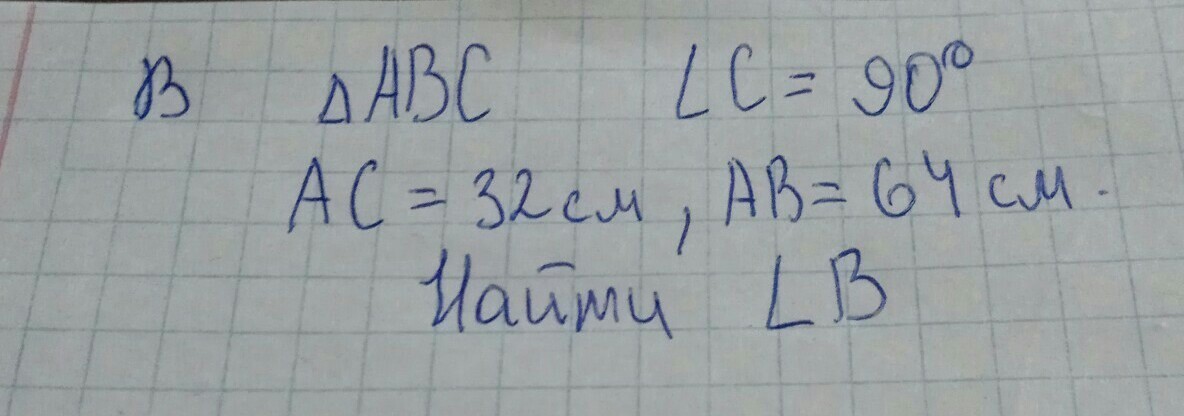 В ΔABC ∠C = 90°
AC = 32 см, AB = 64 см.
Найти ∠B